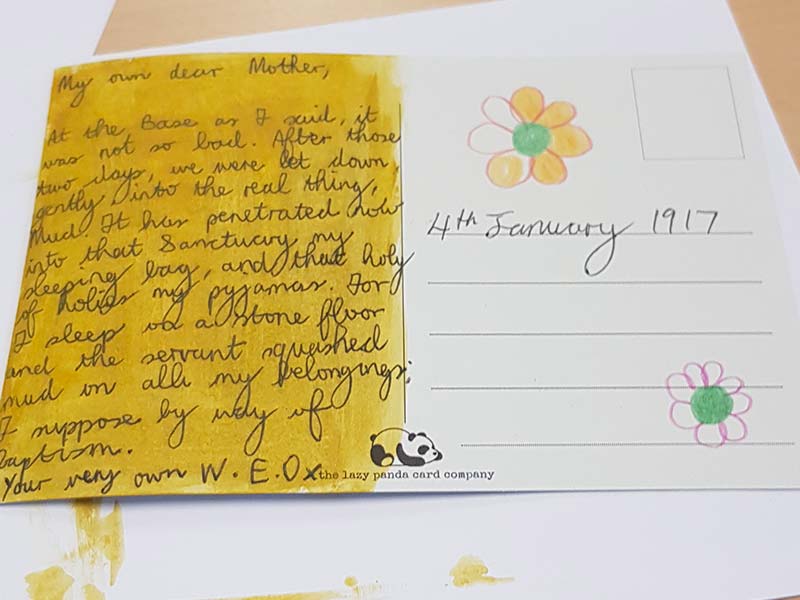 My own dear Mother,
At the Base as I said, it
was not so bad. After those
two days, we were let down,
gently into the real thing,
Mud. It has penetrated now
into that Sanctuary my
sleeping bag, and that holy
of holies my pyjamas. For
I sleep on a stone floor
and the servant squashed
mud on all my belongings;
I suppose by way of
baptism.
Your very own W.E.O x
the lazy panda card company
4th January 1917